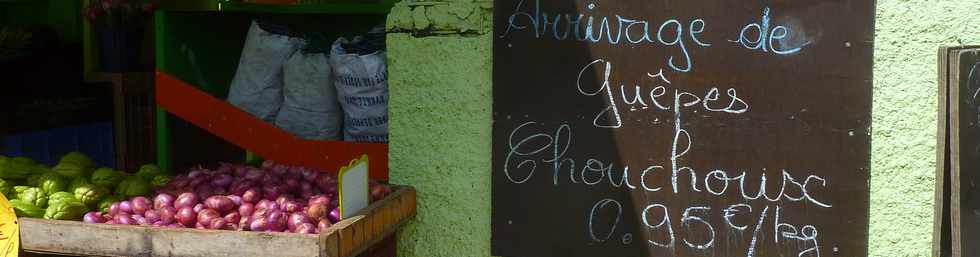 Arrivage de
Guêpes
Chouchoux
0.95€/kg